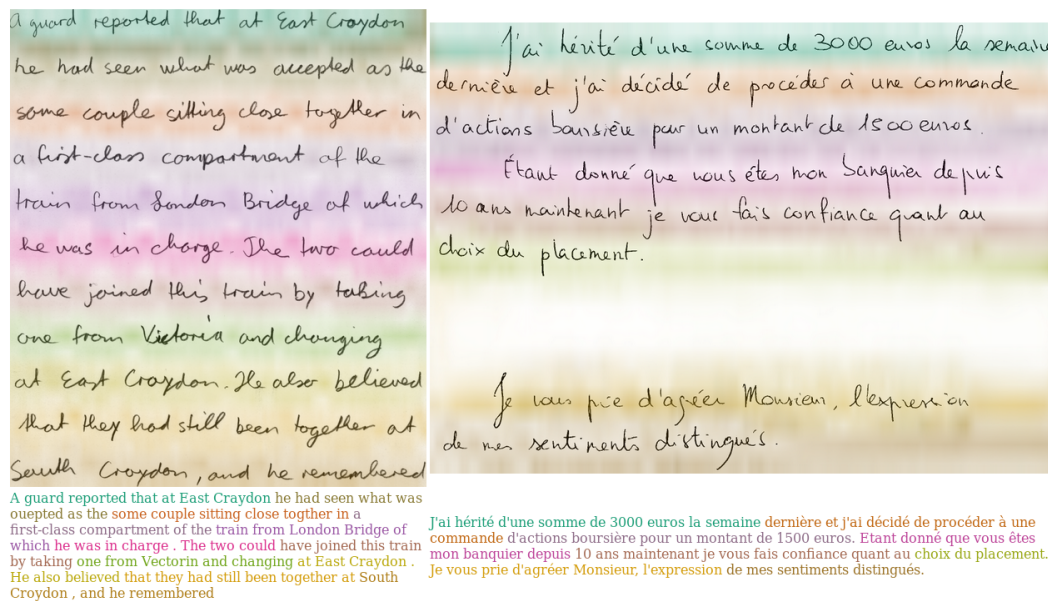 A guard reported that at East Croydon
he had seen what was accepted as the
some couple sitting close together in
a first-class compartment of the
train from London Bridge of which
he was in charge. The two could
have joined this train by taking
one from Victoria and changing
at East Croydon. He also believed
that they had still been together at
South Croydon, and he remembered
A guard reported that at East Craydon he had seen what was
ouepted as the some couple sitting close togther in a
first-class compartment of the train from London Bridge of
which he was in charge . The two could have joined this train
by taking one from Vectorin and changing at East Craydon .
He also believed that they had still been together at South
Croydon , and he remembered
J'ai hérité d'une somme de 3000 euros la semaine
dernière et j'ai décidé de procéder à une commande
d'actions boursière pour un montant de 1500 euros.
Étant donné que vous êtes mon banquier depuis
10 ans maintenant je vous fais confiance quant au
choix du placement.
Je vous prie d'agréer Monsieur, l'expression
de mes sentiments distingués.
J'ai hérité d'une somme de 3000 euros la semaine dernière et j'ai décidé de procéder à une
commande d'actions boursière pour un montant de 1500 euros. Etant donné que vous êtes
mon banquier depuis 10 ans maintenant je vous fais confiance quant au choix du placement.
Je vous prie d'agréer Monsieur, l'expression de mes sentiments distingués.